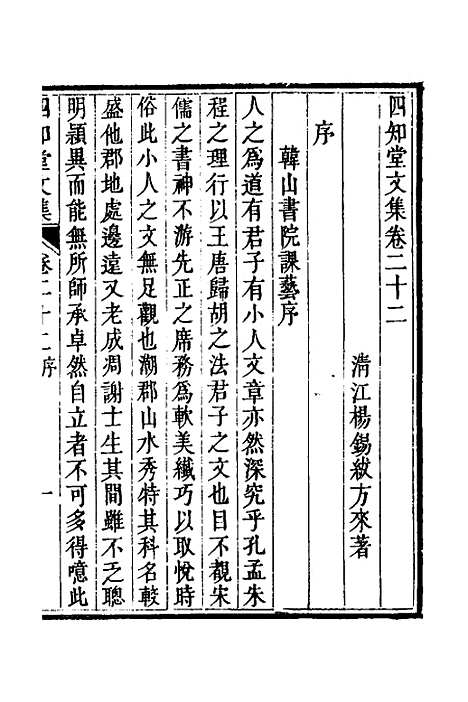 四知堂文集卷二十二
清江楊錫紱方來著
序
韓山書院課藝序
人之爲道有君子有小人文章亦然深究乎孔孟朱
程之理行以王唐歸胡之法君子之文也目不觀宋
儒之書神不游先正之席務爲軟美纖巧以取悅時
俗此小人之文無足觀也潮郡山水秀特其科名較
盛他郡地處邊遠又老成凋謝士生其間雖不乏聰
明穎異而能無所師承卓然自立者不可多得噫此
四知堂文集
卷二十二序
一